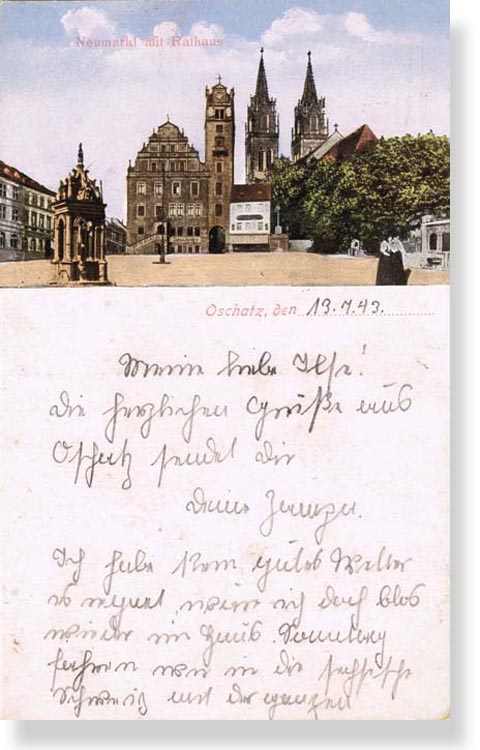 Neumarkt mit Rathaus
Oschatz, den 13.7.43.
Meine liebe Ilse!
die herzlichen Grüße aus
Oschatz sendet Dir
Deine
Ich habe kein gutes Wetter
es regnet, wäre ich doch blos
wieder im Haus. Sonntag
fahren wir in die sächsische
Schweiz mit der ganzen